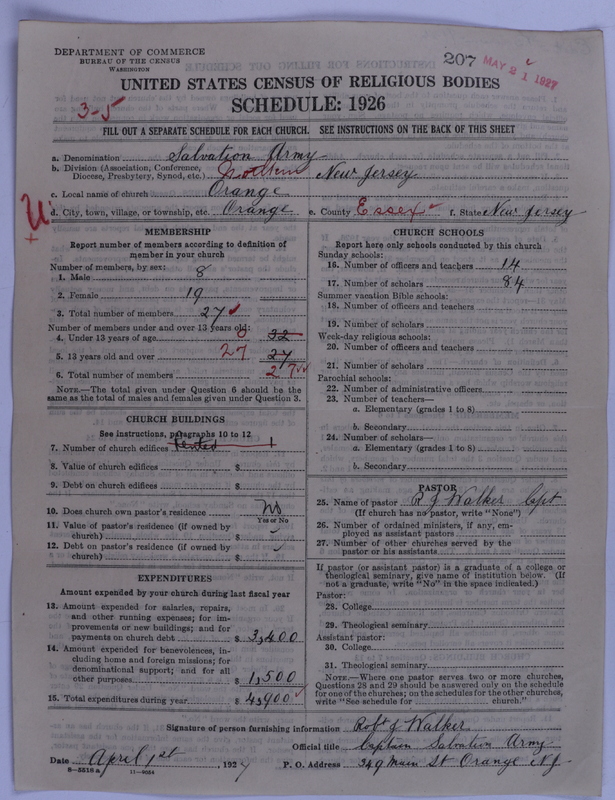 DEPARTMENT OF COMMERCE
BUREAU OF THE CENSUS
WASHINGTON
207
MAY 21 1927
UNITED STATES CENSUS OF RELIGIOUS BODIES
3-5
SCHEDULE: 1926
FILL OUT A SEPARATE SCHEDULE FOR EACH CHURCH. SEE INSTRUCTIONS ON THE BACK OF THIS SHEET
a. Denomination Salvation Army
b. Division (Association, Conference, Diocese, Presbytery, Synod, etc.) Northern New Jersey
c. Local name of church Orange
d. City, town, village, or township, etc. Orange e. County Essex f. State New Jersey
U
+
MEMBERSHIP
Report number of members according to definition of member in your church
Number of members, by sex:
1. Male 8
2. Female 19
3. Total number of members 27
Number of members under and over 13 years old:
4. Under 13 years of age 0 32
5. 13 years old and over 27 27
6. Total number of members 27
NOTE.—The total given under Question 6 should be the same as the total of males and females given under Question 3.
CHURCH BUILDINGS
See instructions, paragraphs 10 to 12
7. Number of church edifices Rented 1
8. Value of church edifices $
9. Debt on church edifices $
10. Does church own pastor's residence No
Yes or No
11. Value of pastor's residence (if owned by church) $
12. Debt on pastor's residence (if owned by church) $
EXPENDITURES
Amount expended by your church during last fiscal year
13. Amount expended for salaries, repairs, and other running expenses; for improvements or new buildings; and for payments on church debt $ 3,400
14. Amount expended for benevolences, including home and foreign missions; for denominational support; and for all other purposes $ 1,500
15. Total expenditures during year $ 4,900
CHURCH SCHOOLS
Report here only schools conducted by this church
Sunday schools:
16. Number of officers and teachers 14
17. Number of scholars 84
Summer vacation Bible schools:
18. Number of officers and teachers
19. Number of scholars
Week-day religious schools:
20. Number of officers and teachers
21. Number of scholars
Parochial schools:
22. Number of administrative officers
23. Number of teachers—
a. Elementary (grades 1 to 8)
b. Secondary
24. Number of scholars—
a. Elementary (grades 1 to 8)
b. Secondary
PASTOR
25. Name of pastor R J Walker Capt
(If church has no pastor, write "None")
26. Number of ordained ministers, if any, employed as assistant pastors
27. Number of other churches served by the pastor or his assistants
If pastor (or assistant pastor) is a graduate of a college or theological seminary, give name of institution below. (If not a graduate, write "No" in the space indicated.)
Pastor:
28. College
29. Theological seminary
Assistant pastor:
30. College
31. Theological seminary
NOTE.—Where one pastor serves two or more churches, Questions 28 and 29 should be answered only on the schedule for one of the churches; on the schedules for the other churches, write "See schedule for church."
Signature of person furnishing information Robt J Walker
Official title Captain Salvation Army
Date April 1st, 1927 P. O. Address 349 Main St Orange N.J.
8-5516a 11-9054